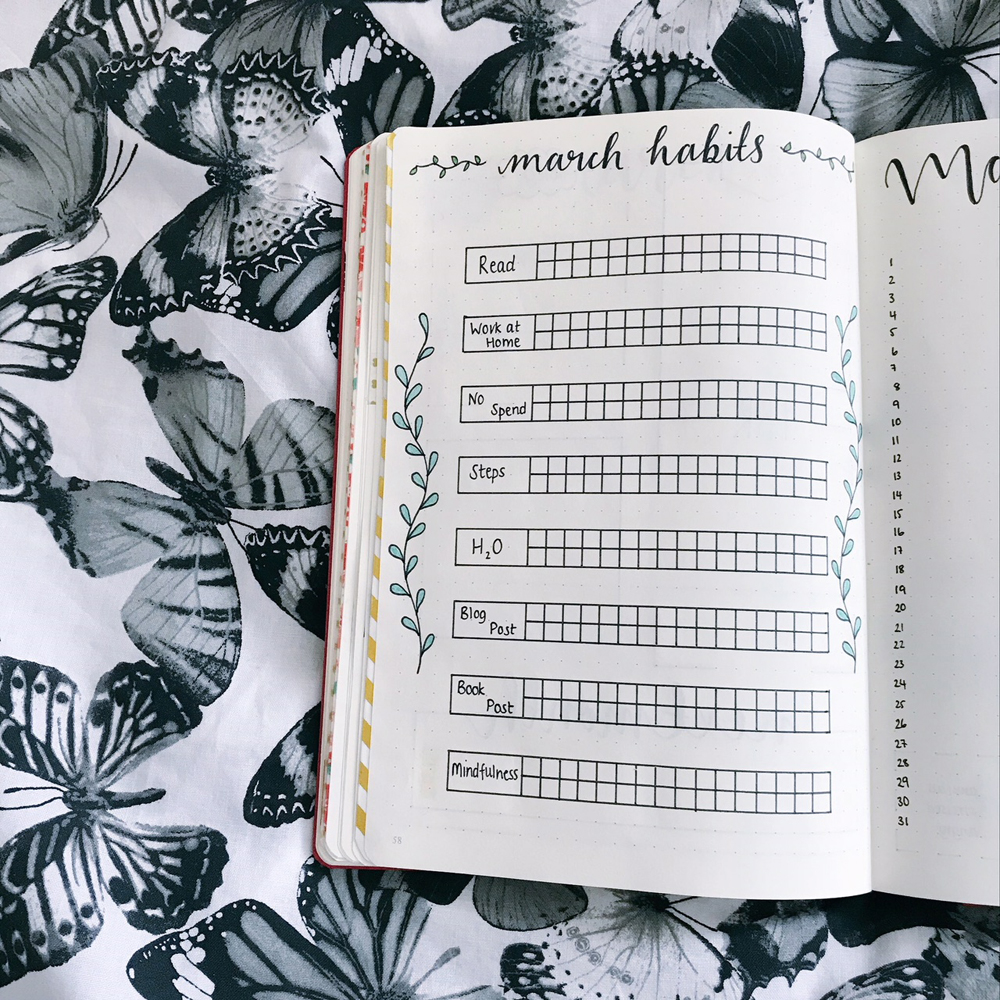 march habits
Read
Work at
Home
No
Spend
Steps
H₂O
Blog
Post
Book
Post
Mindfulness
38
Ma
1
2
3
4
5
6
7
8
9
10
11
12
13
14
15
16
17
18
19
20
21
22
23
24
25
26
27
28
29
30
31